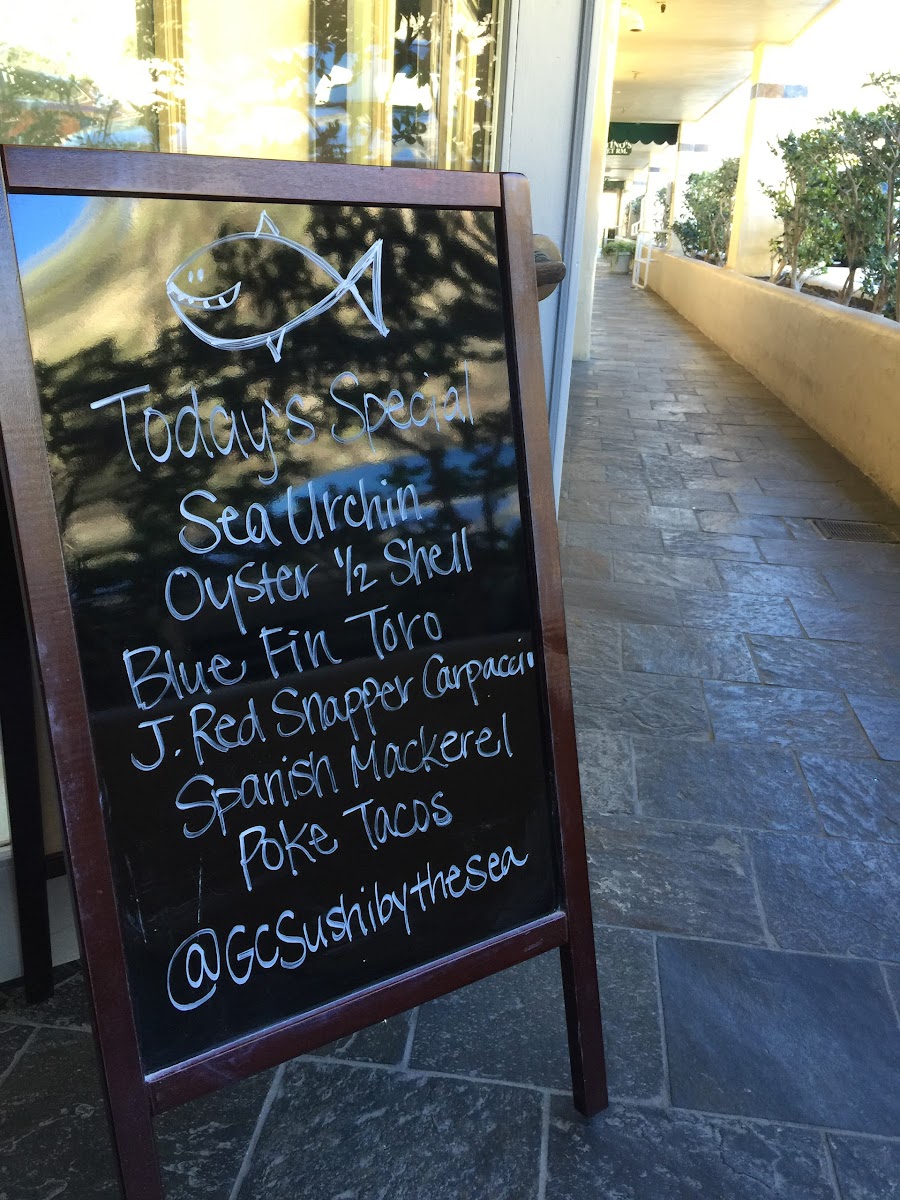 Today's Special
Sea Urchin
Oyster 1/2 Shell
Blue Fin Toro
J. Red Snapper Carpaccio
Spanish Mackerel
Poke Tacos
@GCSushibythesea